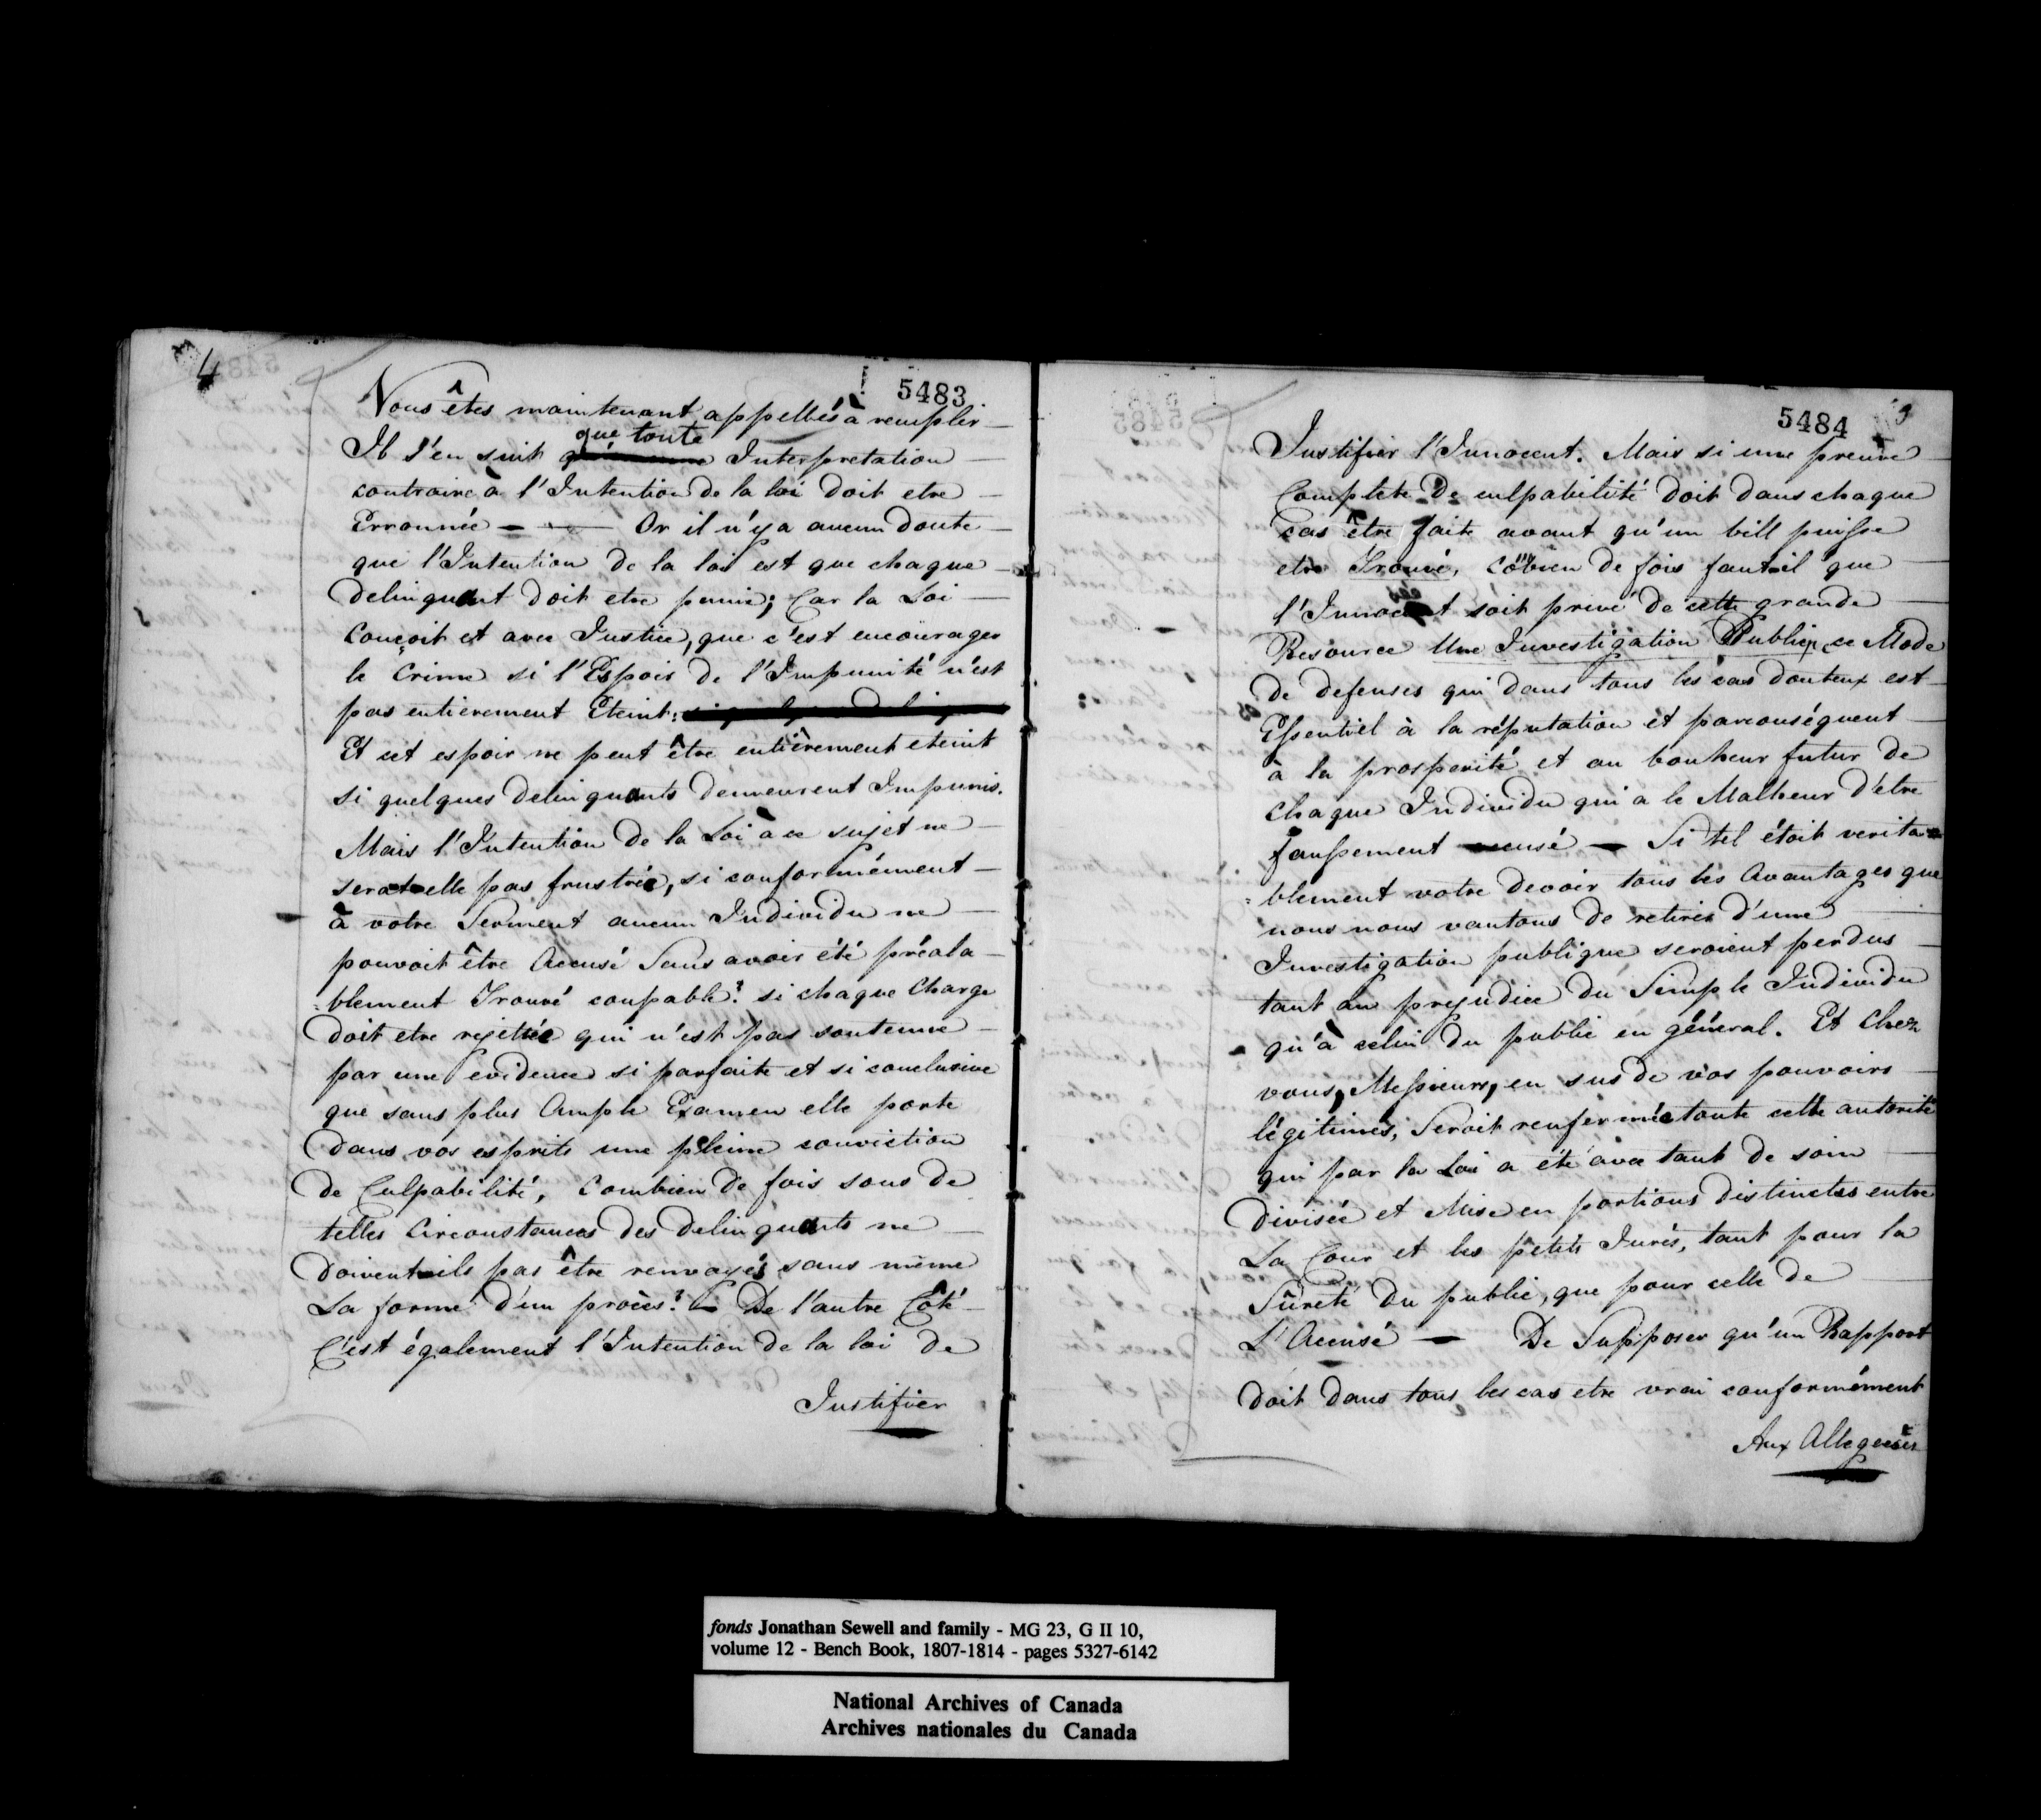 4
5483
Vous êtes maintenant appellés à remplir
Il s'en suit que toute Interpretation
contraire à l'Intention de la loi doit etre
Erronnée — Or il n'y a aucun doute
que l'Intention de la loi est que chaque
delinquant doit etre punie; Car la Loi
Conçoit et avec Justice, que c'est encourager
le Crime si l'Espoir de l'Impunité n'est
pas entierement Eteint:
Et cet espoir ne peut être entièrement eteint
si quelques delinquants demeurent Impunis.
Mais l'Intention de la Loi à ce sujet ne
serat-elle pas frustrée, si conformément
à votre Serment aucun Individu ne
pouvoit être Accusé Sans avoir été préala
=blement Trouvé coupable? si chaque Charge
doit etre rejettée qui n'est pas soutenue
par une evidence si parfaite et si conclusive
que sans plus Ample Examen elle porte
dans vos esprits une pleine conviction
de Culpabilité, Combien de fois sous de
telles Circonstances des delinquants ne
doivent-ils pas être renvoyés sans même
La forme d'un procès? — De l'autre Côté
C'est également l'Intention de la loi de
Justifier
5484
Justifier l'Innocent. Mais si une preuve
Complete de culpabilité doit dans chaque
cas être faite avant qu'un bill puisse
etre Trouvé, Cöbien de fois faut-il que
l'Innocent soit privé de cette grande
Resource Une Investigation Publique, ce Mode
de defenses qui dans tous les cas douteux est
Essentiel à la réputation et parconséquent
à la prosperité et au bonheur futur de
chaque Individu qui a le Malheur d'être
faussement accusé — Si tel étoit verita
=blement votre devoir tous les Avantages que
nous nous vantons de retirer d'une
Investigation publique seroient perdus
tant au prejudice du Simple Individu
qu'à celui du public en général. Et Chez
vous, Messieurs, en sus de vos pouvoirs
légitimes, Seroit renfermée toute cette autorité
qui par la Loi a été avec tant de soin
divisée et Mise en portions distinctes entre
La Cour et les petits Jurés, tant pour la
Sûreté du public, que pour celle de
L'Accusé — De Supposer qu'un Rapport
doit dans tous les cas etre vrai conformément
Aux
fonds Jonathan Sewell and family - MG 23, G II 10,
volume 12 - Bench Book, 1807-1814 - pages 5327-6142
National Archives of Canada
Archives nationales du Canada